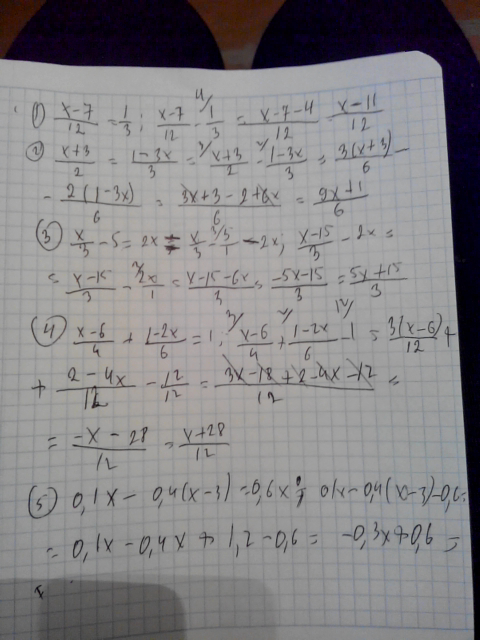 1) (x-7)/12 = 1/3; (x-7)/12 - 4/ 1/3 = (x-7-4)/12 = (x-11)/12
2) (x+3)/2 = (1-3x)/3 = 3/ (x+3)/2 - 2/ (1-3x)/3 = 3(x+3)/6 -
- 2(1-3x)/6 = (3x+3-2+6x)/6 = (9x+1)/6
3) x/3 - 5 = 2x; x/3 - 3/ 5/1 - 2x; (x-15)/3 - 2x =
= (x-15)/3 - 3/ 2x/1 = (x-15-6x)/3 = (-5x-15)/3 = (5x+15)/3
4) (x-6)/4 + (1-2x)/6 = 1; 3/ (x-6)/4 + 2/ (1-2x)/6 - 12/ 1 = 3(x-6)/12 +
+ (2-4x)/12 - 12/12 = (3x-18+2-4x-12)/12 =
= (-x-28)/12 = (x+28)/12
5) 0,1x - 0,4(x-3) = 0,6x; 0,1x-0,4(x-3)-0,6=
= 0,1x - 0,4x + 1,2 - 0,6 = -0,3x+0,6 =